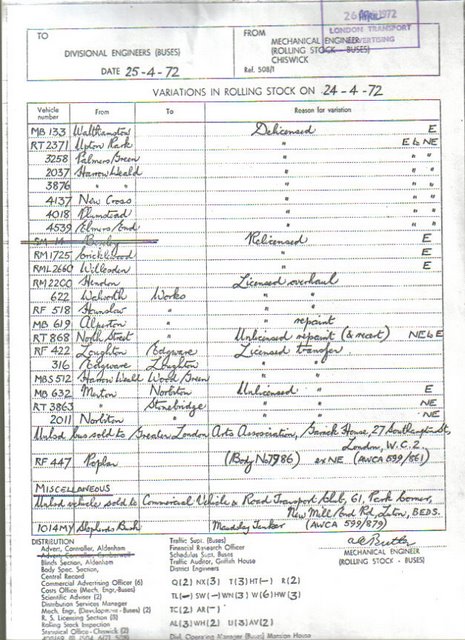 26 APR 1972
LONDON TRANSPORT
ADVERTISING
TO
DIVISIONAL ENGINEERS (BUSES)
DATE 25-4-72
FROM
MECHANICAL ENGINEER
(ROLLING STOCK - BUSES)
CHISWICK
Ref. 508/1
VARIATIONS IN ROLLING STOCK ON 24-4-72
Vehicle number From To Reason for variation
MB 133 Walthamstow Delicensed E
RT 2371 Upton Park " E to NE
3258 Palmers Green " " "
2037 Harrow Weald " " "
3876 " " " " "
4137 New Cross " " "
4018 Plumstead " " "
4539 Elmers End " " "
SM 14 Bexley Relicensed E
RM 1725 Cricklewood " E
RML 2660 Willesden " E
RM 2200 Hendon Licensed overhaul
622 Walworth Works " "
RF 518 Hounslow " " "
MB 619 Alperton " " repaint
RT 868 North Street " Unlicensed repaint (& recert) NE to E
RF 422 Loughton Edgware Licensed transfer
316 Edgware Loughton " "
MBS 512 Harrow Weald Wood Green " "
MB 632 Merton Norbiton Unlicensed " E
RT 3863 " Stonebridge " " NE
2011 Norbiton " " " NE
Unlsd bus sold to Greater London Arts Association, Garrick House, 27 Southampton St,
London, W.C.2.
RF 447 Poplar (Body No 7986) ex NE (AWCA 599/861)
MISCELLANEOUS
Unlsd vehicle sold to Commercial Vehicle & Road Transport Club, 61, Park Corner,
New Mill End Rd, Luton, BEDS.
1014MY Shepherds Bush Maudslay Tanker (AWCA 599/879)
DISTRIBUTION
Advert. Controller, Aldenham
Advert. Controller, Camberwell
Blinds Section, Aldenham
Body Spec. Section,
Central Record
Commercial Advertising Officer (6)
Costs Office (Mech. Engr.-Buses)
Scientific Adviser (2)
Distribution Services Manager
Mech. Engr. (Development - Buses) (2)
R. S. Licensing Section (3)
Rolling Stock Inspection
Statistical Office - Chiswick (2)
Traffic Supt. (Buses)
Financial Research Officer
Schedules Supt. Buses
Traffic Auditor, Griffith House
District Engineers
Q (2) NX (3) T (3) HT (-) R (2)
TL (-) SW (-) WN (3) W (6) HW (3)
TC (2) AR (-)
AL (3) WH (2) U (3) AV (2)
Divl. Operating Manager (Buses) Mansion House
MECHANICAL ENGINEER
(ROLLING STOCK - BUSES)